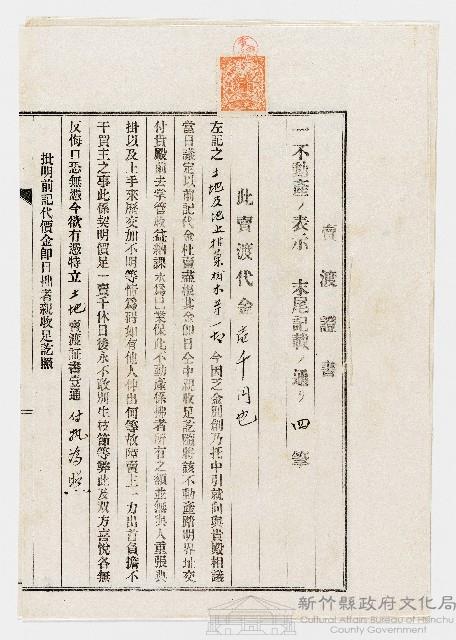 賣渡證書
一不動產ノ表示 末尾記載ノ通リ 四筆
此賣渡代金壱千円也
左記之土地及地上竹菓樹木等一切今因乏金別創乃托中引就向與貴殿相議
當日議定以前記代金杜賣盡根其金即日仝中親收足訖隨將該不動產踏明界址交
付貴殿前去掌管收益納課永為己業保此不動產係拙者所有之額並無與人重張典
掛以及上手來歷交加不明等情為碍如有他人仲出何等故障賣主一力出首負擔不
干買主之事此係契明價足一賣千休日後永不敢別生枝節等弊此及双方喜悅各無
反悔口恐無憑今欲有憑特立土地賣渡証書壹通付執為照
批明前記代價金即日拙者親收足訖照
新竹縣政府文化局
Cultural Affairs Bureau of Hsinchu
County Government